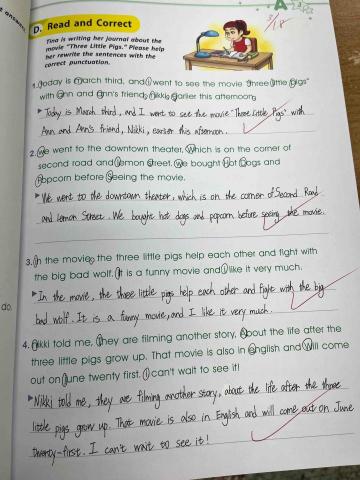 D. Read and Correct
Tina is writing her journal about the
movie "Three Little Pigs." Please help
her rewrite the sentences with the
correct punctuation.
3/18
1. today is march third, and i went to see the movie "three little pigs"
with ann and ann's friend, nikki, earlier this afternoon.
▶ Today is March third, and I went to see the movie "Three Little Pigs" with
Ann and Ann's friend, Nikki, earlier this afternoon.
2. we went to the downtown theater, which is on the corner of
second road and lemon street. we bought hot dogs and
popcorn before seeing the movie.
▶ We went to the downtown theater, which is on the corner of Second Road
and Lemon Street. We bought hot dogs and popcorn before seeing the movie.
3. in the movie, the three little pigs help each other and fight with
the big bad wolf. it is a funny movie and i like it very much.
▶ In the movie, the three little pigs help each other and fight with the big
bad wolf. It is a funny movie, and I like it very much.
do.
4. nikki told me, they are filming another story, about the life after the
three little pigs grow up. That movie is also in english and will come
out on june twenty first. i can't wait to see it!
▶ Nikki told me, they are filming another story, about the life after the three
little pigs grow up. That movie is also in English and will come out on June
twenty-first. I can't wait to see it!